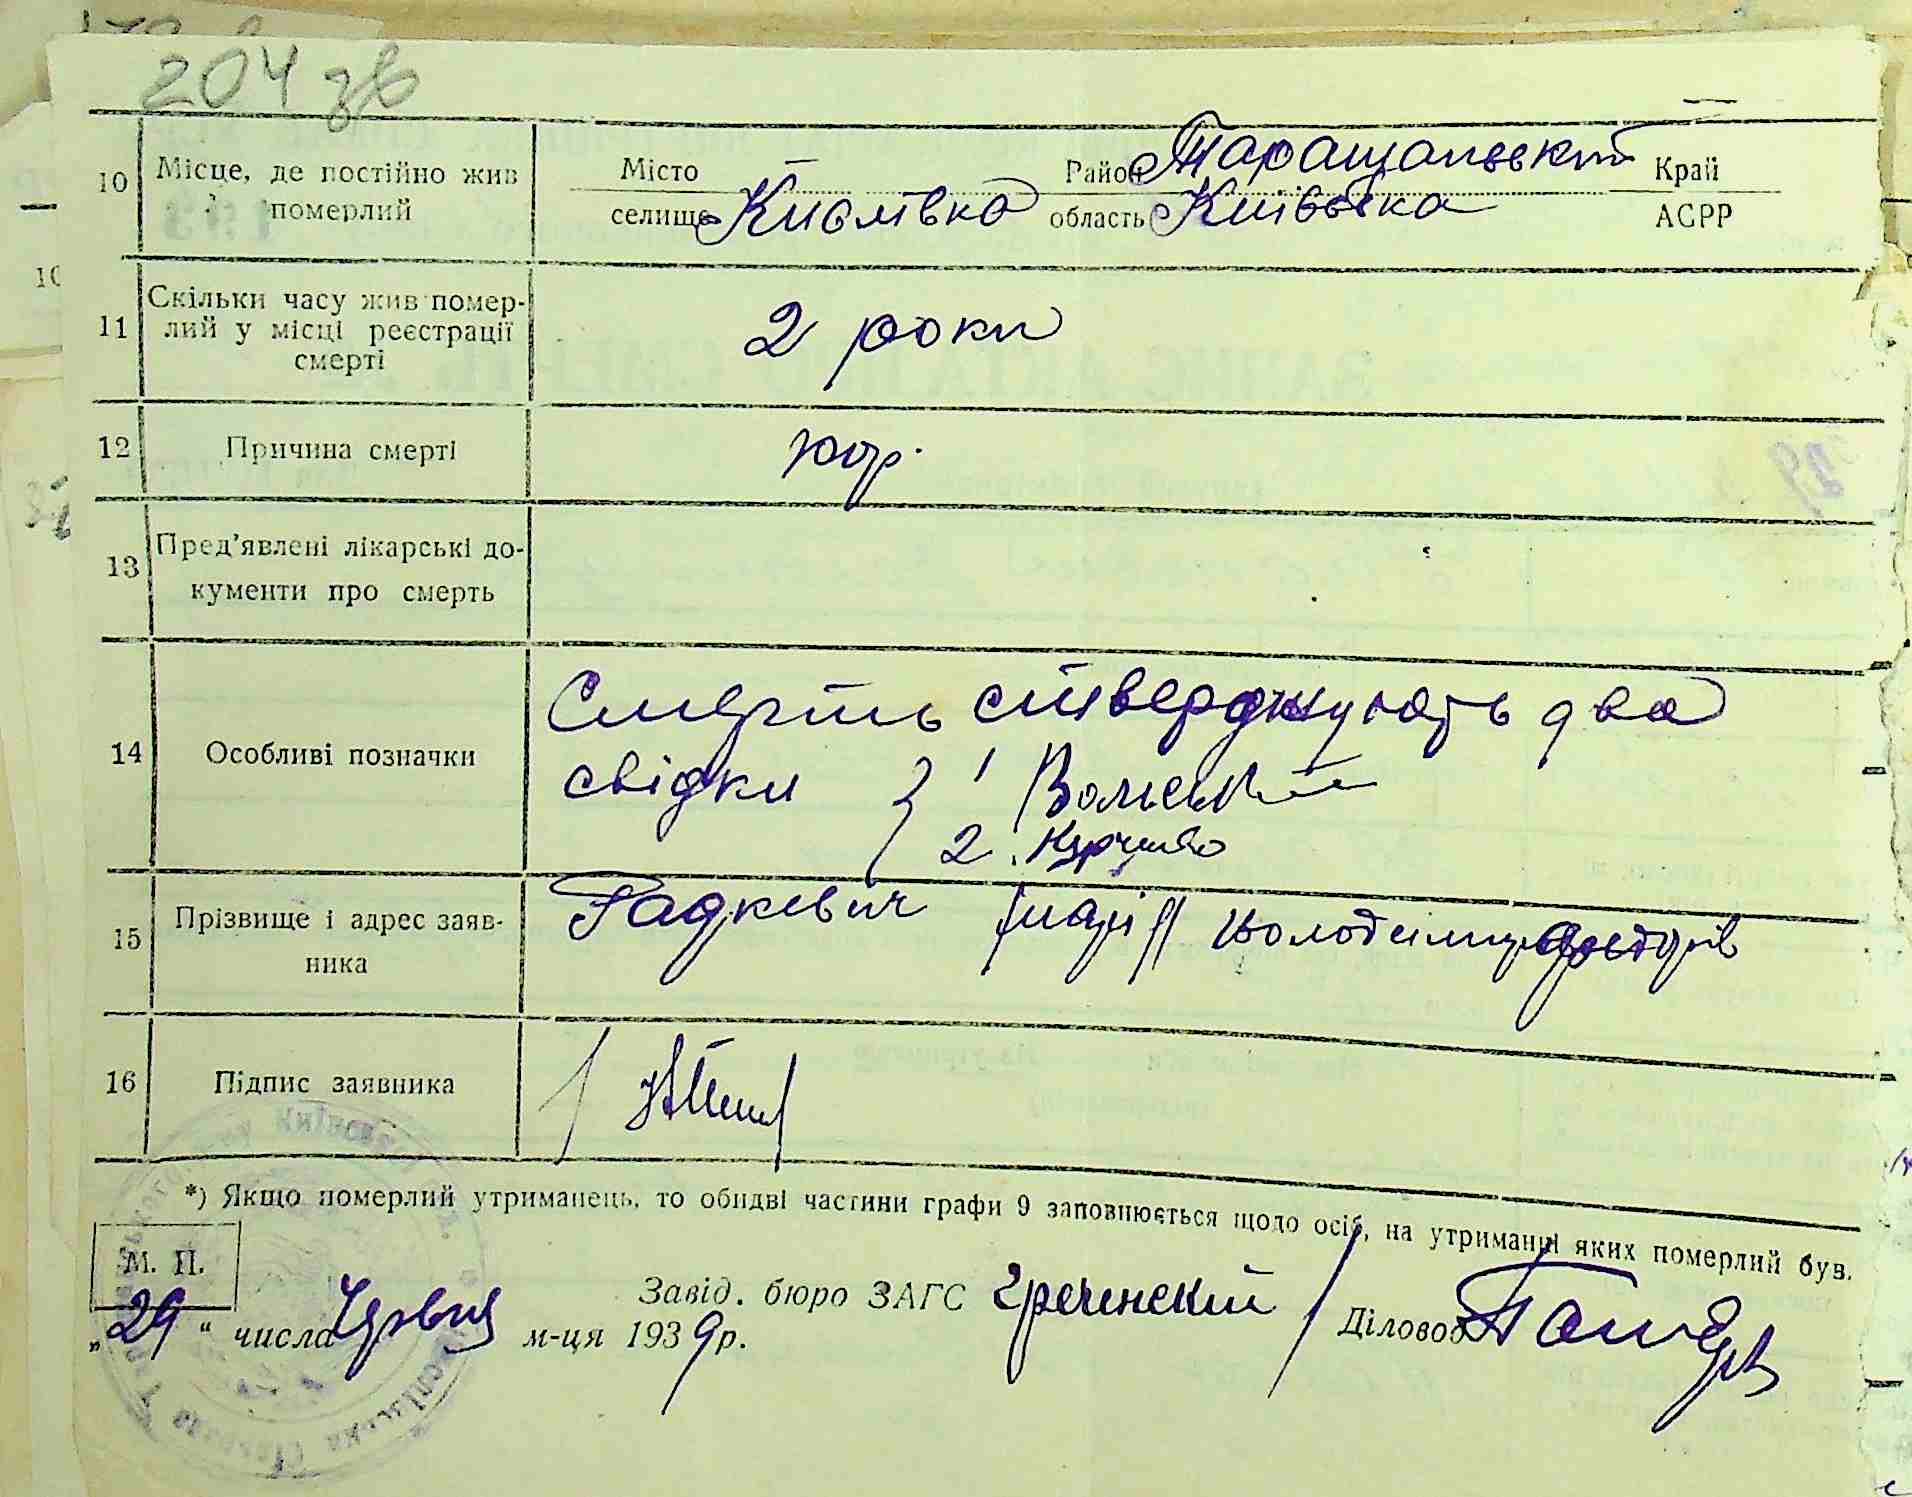 204 зв
10 Місце, де постійно жив померлий
Місто селище Кислівка Район Таращанський Край
область Київська АСРР
11 Скільки часу жив померлий у місці реєстрації смерті
2 роки
12 Причина смерті
кор.
13 Пред'явлені лікарські документи про смерть
14 Особливі позначки
Смерть стверджують два
свідки 1 Вольський
2.
15 Прізвище і адрес заявника
Радкевич
16 Підпис заявника
*) Якщо померлий утриманець, то обидві частини графи 9 заповнюється щодо осіб, на утриманні яких померлий був.
М. П.
Завід. бюро ЗАГС Гречинский Діловод
„29“ числа Червня м-ця 1939р.